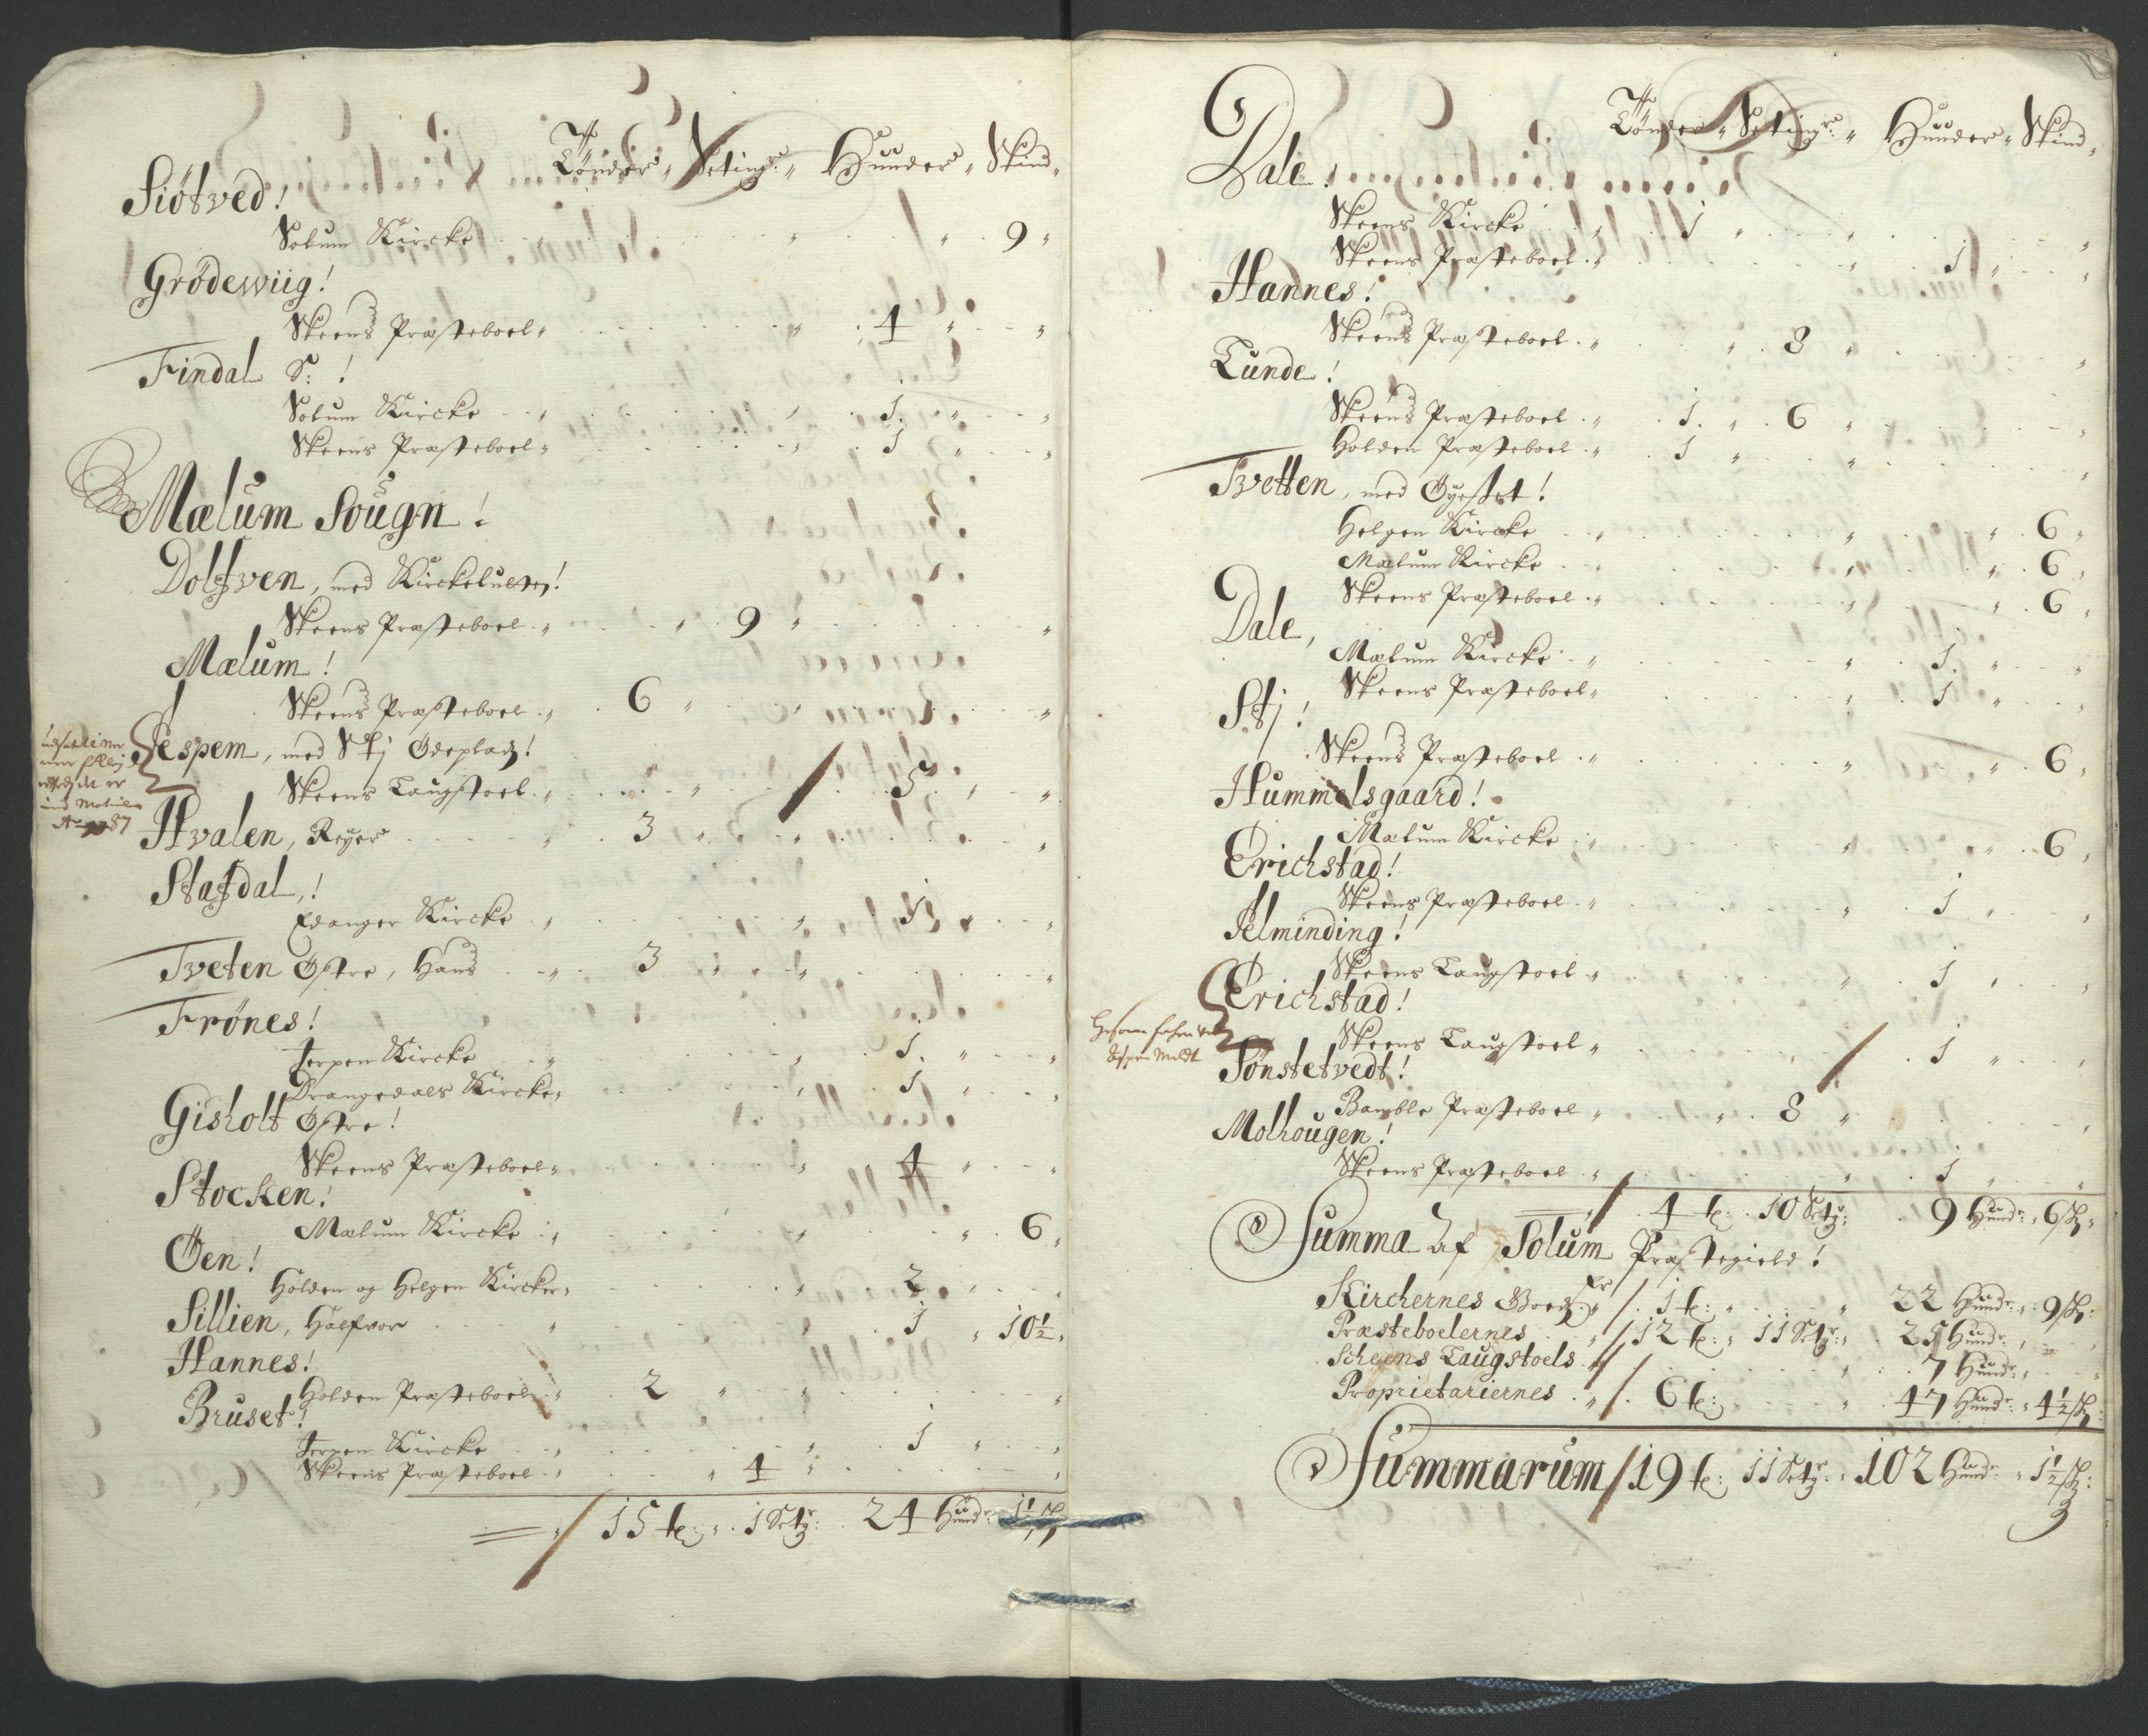 Tønder " Setingr " Hunder " Skind "
Siötved!
Solum Kircke " " " 9 "
Grödewiig!
Skeens Præsteboel " " 4 " "
Findal S: !
Solum Kircke " " 1. " "
Skeens Præsteboel " " 1 " "
Mælum Sougn!
Dolfven, med Kirckeluten!
Skeens Præsteboel " " 9 " "
Mælum!
Skeens Præsteboel " 6 " " "
Jespem, med Stj Ödeplads!
Skeens Laugstoel " " 5 " "
Hvalen, Reyer " 3 " " "
Stafdal,!
Edanger Kircke " " 1 " "
Tveten Östre, Hans " 3 " " "
Frönes!
Jerpen Kircke " " 1. " "
Drangedals Kircke " " 1 " "
Gisholt Östre!
Skeens Præsteboel " " 4 " "
Stocken!
Mælum Kircke " " " 6 "
Öen!
Holden og Helgen Kircker " " 2 " "
Sillien, Halfvor " " 1 " 10½ "
Hannes!
Holden Præsteboel " 2 " " "
Bruset!
Jerpen Kircke " " 1 " "
Skeens Præsteboel " " 4 " "
15 t: " 1 Setr: 24 Hundr: 1½ sk
Tønder " Setingr: " Hunder " Skind "
Dale!
Skeens Kircke " 1 " " "
Skeens Præsteboel " " 1 " "
Hannes!
Skeens Præsteboel " " 8 " "
Lunde!
Skeens Præsteboel " 1. " 6 " "
Holden Præsteboel " 1 " " "
Tvetten, med Öyestet!
Helgen Kircke " " " 6 "
Mælum Kircke " " " 6 "
Skeens Præsteboel " " " 6 "
Dale,
Mælum Kircke " " 1. " "
Skeens Præsteboel " " 1 " "
Stj!
Skeens Præsteboel " " " 6 "
Hummelsgaard!
Mælum Kircke " " " 6 "
Erichstad!
Skeens Præsteboel " " 1 " "
Jelminding!
Skeens Laugstoel " " 1 " "
Erichstad!
Skeens Laugstoel " " 1 " "
Sönstetvedt!
Bamble Præsteboel " " 8 " "
Molhougen!
Skeens Præsteboel " " 1 " "
4 t: 10 Setr: 9 Hundr: 6 sk "
Summa af Solum Præstegield!
Kirchernes Goeds Er 1 t: " " 22 Hundr: " 9 sk:
Præsteboelernes " 12 t: " 11 Setr: " 25 Hundr: "
Scheens Laugstoels " " 7 Hundr: "
Proprietariernes " 6 t: " 47 Hundr: " 4½ sk:
Summarum 19 t: 11 Setr: " 102 Hundr: " 1½ sk: